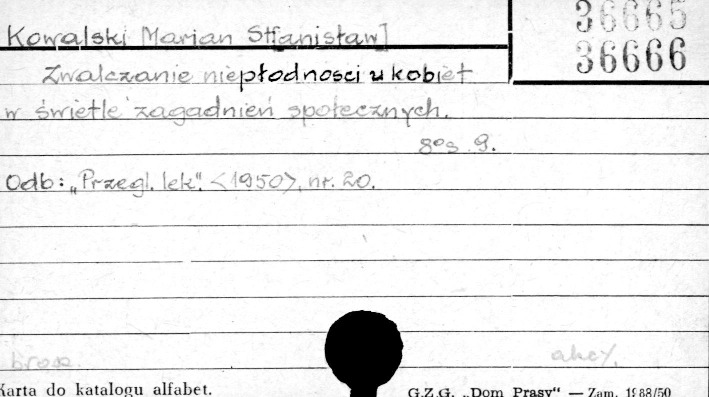 36665
Kowalski Marian St[anisław]
36666
Zwalczanie niepłodności u kobiet
w świetle zagadnień społecznych.
8° s. 9.
Odb: „Przegl. lek". <1950>, nr. 20.
brosz. akc.
Karta do katalogu alfabet. G.Z.G. „Dom Prasy" — Zam. 1988/50